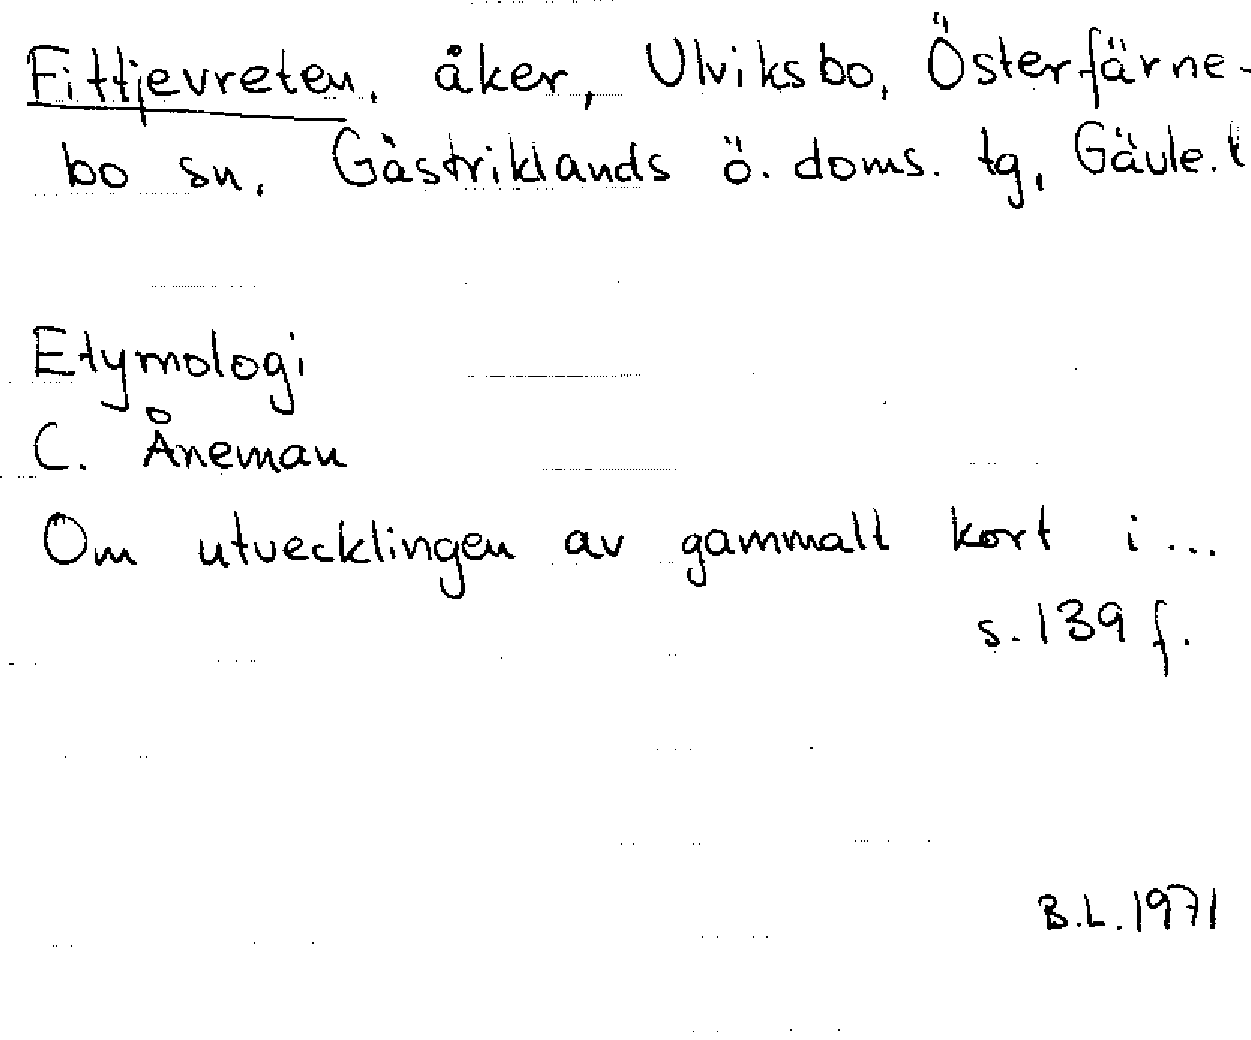 Fittjevreten, åker, Ulviksbo, Österfärne-
bo sn, Gästriklands ö. doms. tg, Gävle. l
Etymologi
C. Åneman
Om utvecklingen av gammalt kort i ...
s. 139 f.
B.L. 1971